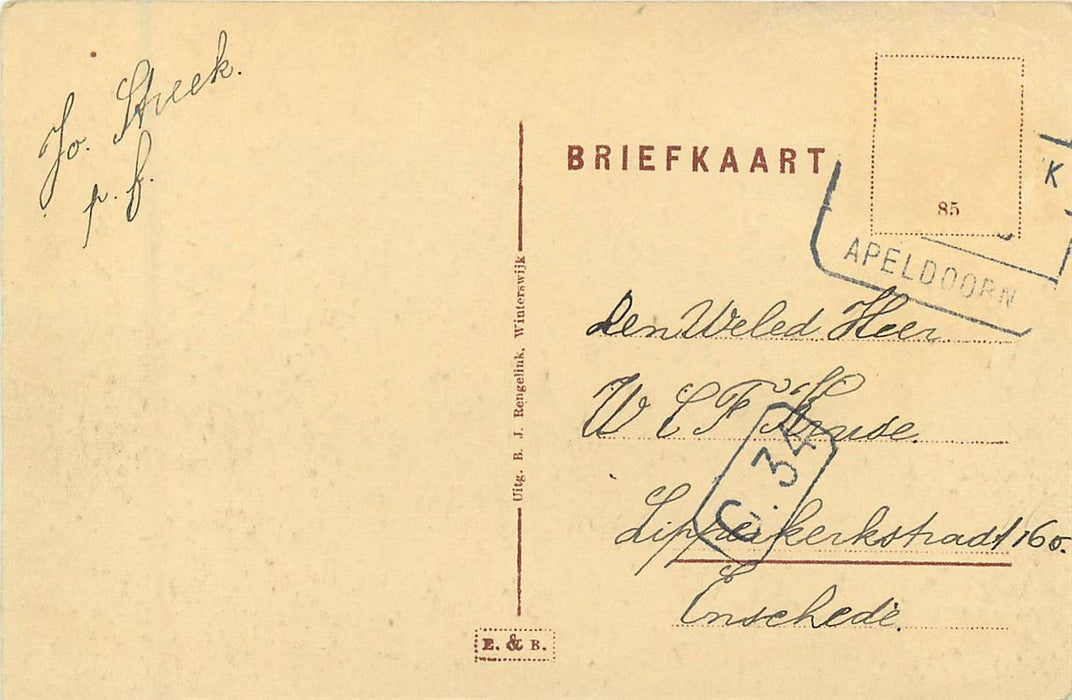 Jo. Streek.
p. f.
BRIEFKAART
85
K
APELDOORN
Den Weled Heer
W C F Kruse.
C. 34
Lipperkerkstradt 160.
Enschede.
Uitg. B. J. Rengelink, Winterswijk
E. & B.